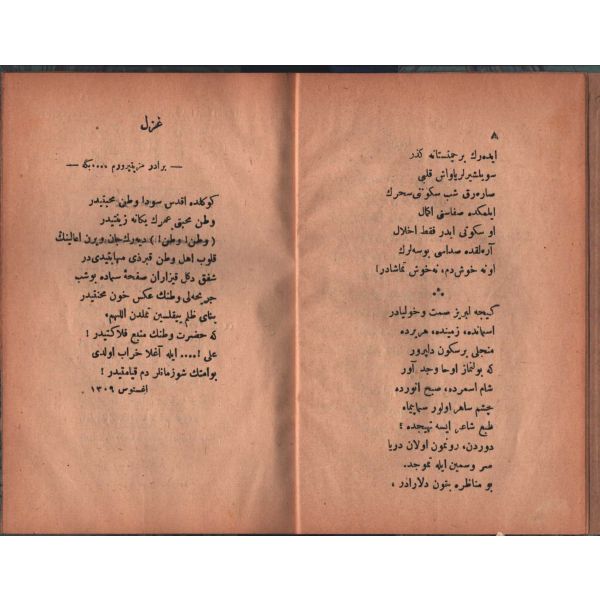 ٨
ایده‌رك بر چمنستانه گذر
سویلشیرلر یاواش قلبی
صاره‌رق شب سكوتنی سحرك
ایلمكده صفاسنی اكمال
او سكوتی ایدر فقط اخلال
آره‌لقده صداسی بوسه‌لرك
او نه خوش دم، نه خوش تماشادر!
***
كیجه لبریز صمت و خولیادر
اسمانده، زمینده، هر یرده
منجلی بر سكون دلپرور
كه بولنماز اوكا وجد آور
شام اسمرده، صبح انورده
چشم ساهر اولور سمایماه
طبع شاعر ایسه تهیجده ؟
دوردن، رونمون اولان دریا
صر وسمین ایله تموجده.
بو مناظره بتون دلارادر ،
غزل
— برادر مزیتپرورم ....بكه —
كوكلده اقدس سودا وطن محبتیدر
وطن محبتی عمرك یكانه زینتیدر
( وطن! وطن! ) دیه‌رك جان ویرن اهالینك
قلوب اهل وطن قبرذی مهابتیدی در
شفق دكل قیزاران صفحهٔ سماده بوشب
جریحه‌لی وطنك عكس خون محنتیدر
بنای ظلم ییقلسین تملدن اللهم
كه حضرت وطنك منبع فلاكتیدر !
علی !.... ایله آغلا خراب اولدی
بو امتك شو زمانلر دم قیامتیدر !
اغستوس ١٣٠٩